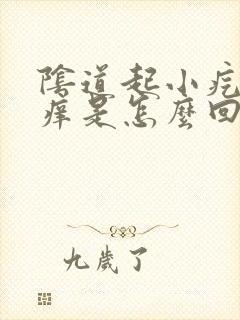 陰道起小疙
痒是怎麼回
九歲了